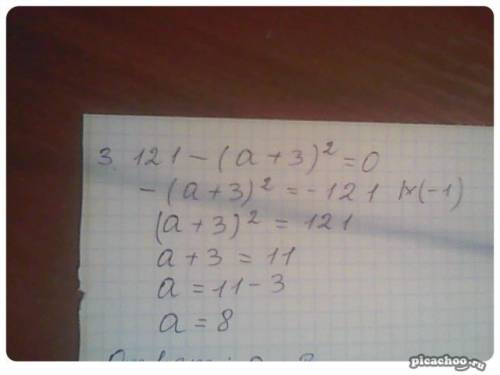 3. 121 - (a + 3)² = 0
- (a + 3)² = - 121 |×(-1)
(a + 3)² = 121
a + 3 = 11
a = 11 - 3
a = 8
picachoo.ru